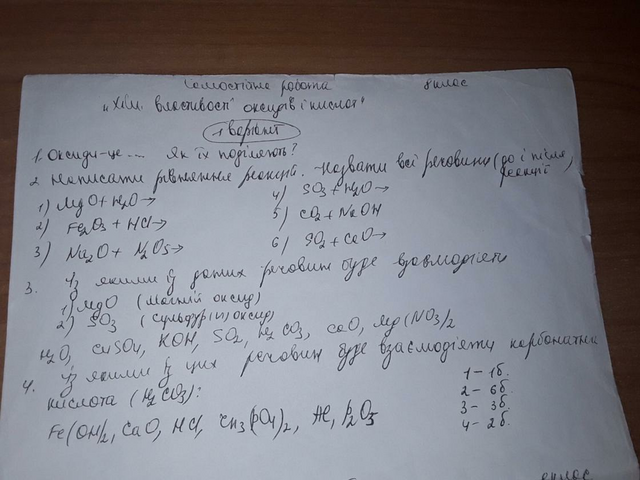 Самостійна робота 8 клас
„Хім. властивості оксидів і кислот"
1 варіант
1. Оксиди-це ... Як їх поділяють?
2. Написати рівняння реакцій. Назвати всі речовини (до і після реакції)
1) MgO + H₂O →
2) Fe₂O₃ + HCl →
3) Na₂O + N₂O₅ →
4) SO₃ + H₂O →
5) CO₂ + NaOH
6) SO₂ + CaO →
3. З якими із даних речовин буде взаємодіяти
1) MgO (магній оксид)
2) SO₃ (сульфур(VI) оксид)
H₂O, CuSO₄, KOH, SO₂, H₂CO₃, CaO, Mg(NO₃)₂
4. З якими із цих речовин буде взаємодіяти карбонатна
кислота (H₂CO₃):
Fe(OH)₂, CaO, HCl, Zn₃(PO₄)₂, Al, P₂O₅
1 - 1б.
2 - 6б.
3 - 3б.
4 - 2б.
8 клас